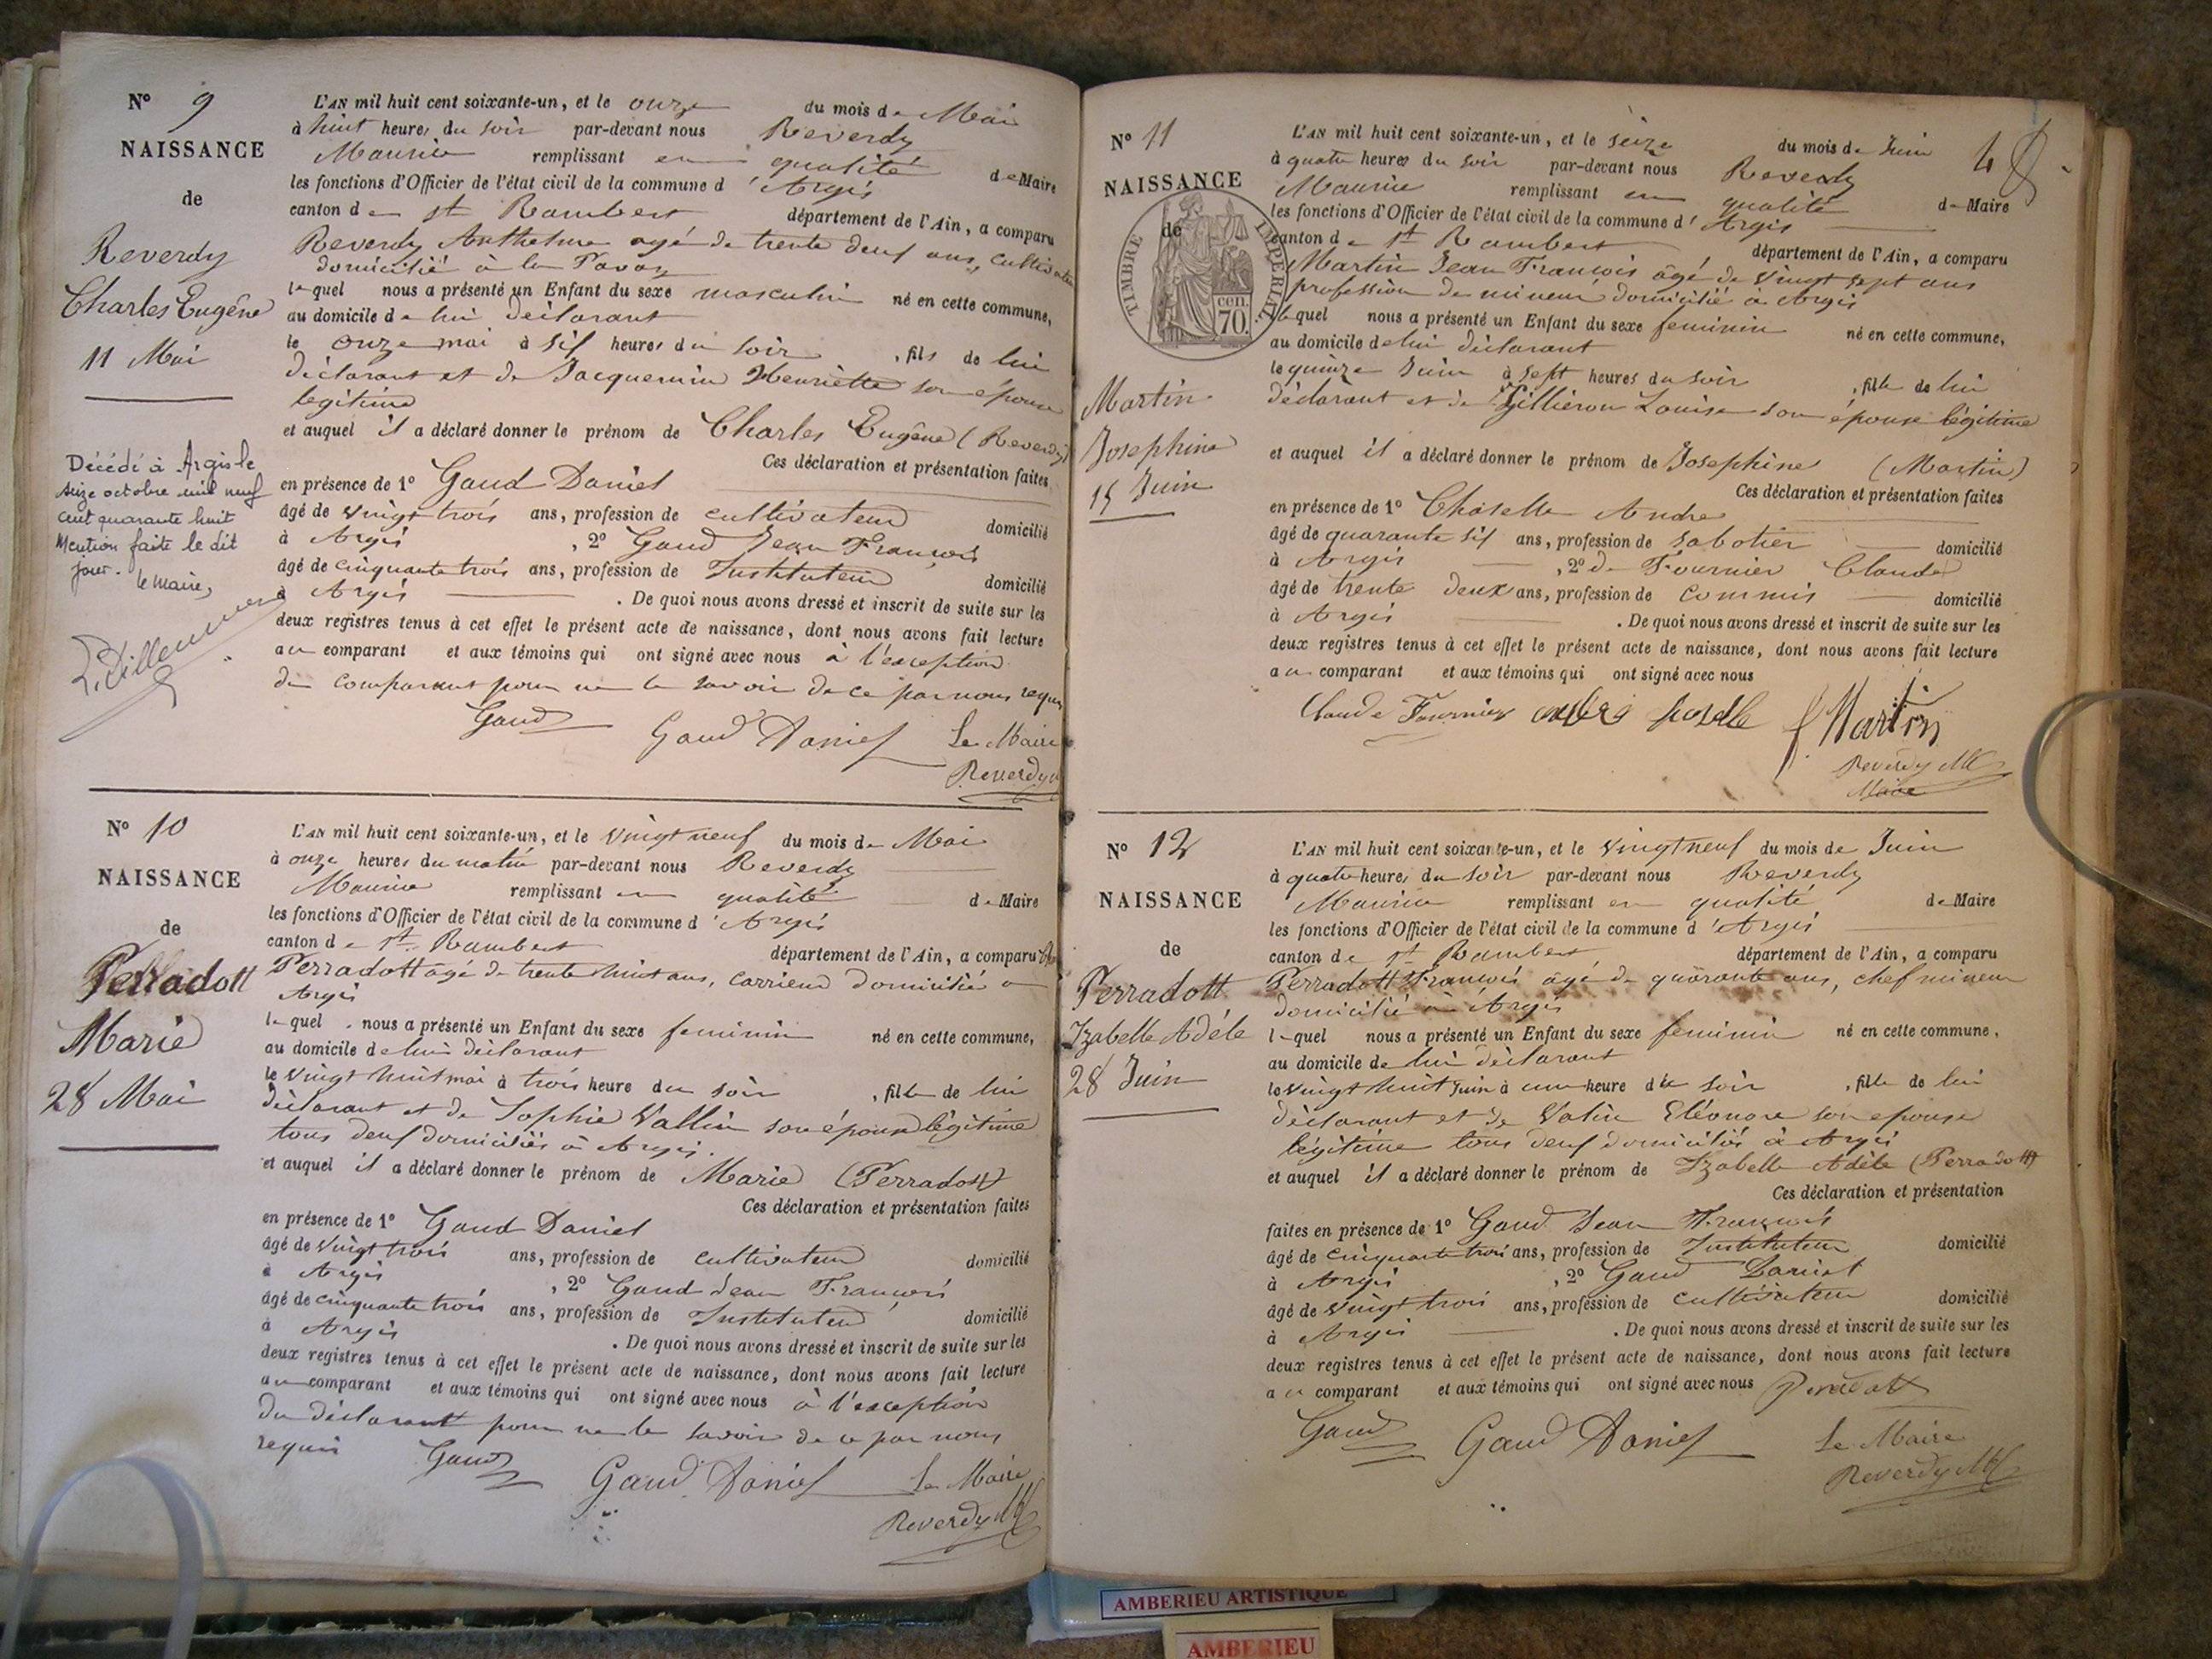 N° 9
NAISSANCE
de
Reverdy
Charles Eugène
11 Mai
Décédé à Argis le
seize octobre mil neuf
cent quarante huit
Mention faite le dit
jour.
le maire,
L'AN mil huit cent soixante-un, et le onze du mois de Mai
à huit heures du soir par-devant nous Reverdy
Maurice remplissant en qualité de Maire
les fonctions d'Officier de l'état civil de la commune d'Argis
canton de St Rambert département de l'Ain, a comparu
Reverdy Anthelme agé de trente deux ans, cultivateur
domicilié à la
lequel nous a présenté un Enfant du sexe masculin né en cette commune,
au domicile de lui déclarant
le onze mai à six heures du soir, fils de lui
déclarant et de Jacquemin Henriette son épouse
légitime
et auquel il a déclaré donner le prénom de Charles Eugène (Reverdy)
Ces déclaration et présentation faites
en présence de 1° Gaud Daniel
âgé de vingt trois ans, profession de cultivateur domicilié
à Argis, 2° Gaud Jean François
âgé de cinquante trois ans, profession de Instituteur domicilié
à Argis. De quoi nous avons dressé et inscrit de suite sur les
deux registres tenus à cet effet le présent acte de naissance, dont nous avons fait lecture
au comparant et aux témoins qui ont signé avec nous à l'exception
du comparant pour ne le savoir de ce par nous requis
Gaud Gaud Daniel Le Maire
Reverdy
N° 10
NAISSANCE
de
Perradott
Marie
28 Mai
L'AN mil huit cent soixante-un, et le vingt neuf du mois de Mai
à onze heures du matin par-devant nous Reverdy
Maurice remplissant en qualité de Maire
les fonctions d'Officier de l'état civil de la commune d'Argis
canton de St Rambert département de l'Ain, a comparu
Perradott âgé de trente huit ans, carrieur domicilié à
Argis
lequel nous a présenté un Enfant du sexe feminin né en cette commune,
au domicile de lui déclarant
le vingt huit mai à trois heure du soir, fille de lui
déclarant et de Sophie Vallin son épouse légitime
tous deux domiciliés à Argis.
et auquel il a déclaré donner le prénom de Marie (Perradott)
Ces déclaration et présentation faites
en présence de 1° Gaud Daniel
âgé de vingt trois ans, profession de cultivateur domicilié
à Argis, 2° Gaud Jean François
âgé de cinquante trois ans, profession de Instituteur domicilié
à Argis. De quoi nous avons dressé et inscrit de suite sur les
deux registres tenus à cet effet le présent acte de naissance, dont nous avons fait lecture
au comparant et aux témoins qui ont signé avec nous à l'exception
du déclarant pour ne le savoir de ce par nous
requis Gaud Gaud Daniel Le Maire
Reverdy M
N° 11
NAISSANCE
de
TIMBRE IMPÉRIAL
70 cen.
Martin
Josephine
15 Juin
L'AN mil huit cent soixante-un, et le seize du mois de Juin
à quatre heures du soir par-devant nous Reverdy
Maurice remplissant en qualité de Maire
les fonctions d'Officier de l'état civil de la commune d'Argis
canton de St Rambert département de l'Ain, a comparu
Martin Jean François âgé de vingt sept ans
profession de mineur domicilié à Argis
lequel nous a présenté un Enfant du sexe feminin né en cette commune,
au domicile de lui déclarant
le quinze Juin à sept heures du soir, fille de lui
déclarant et de Gilliéron Louise son épouse légitime
et auquel il a déclaré donner le prénom de Josephine (Martin)
Ces déclaration et présentation faites
en présence de 1° Choselle Andre
âgé de quarante six ans, profession de sabotier domicilié
à Argis, 2° de Fournier Claude
âgé de trente deux ans, profession de commis domicilié
à Argis. De quoi nous avons dressé et inscrit de suite sur les
deux registres tenus à cet effet le présent acte de naissance, dont nous avons fait lecture
au comparant et aux témoins qui ont signé avec nous
Claude Fournier Martin
Reverdy M
Maire
N° 12
NAISSANCE
de
Perradott
Izabelle Adéle
28 Juin
L'AN mil huit cent soixante-un, et le vingt neuf du mois de Juin
à quatre heures du soir par-devant nous Reverdy
Maurice remplissant en qualité de Maire
les fonctions d'Officier de l'état civil de la commune d'Argis
canton de St Rambert département de l'Ain, a comparu
Perradott François âgé de quarante ans, chef mineur
domicilié à Argis
lequel nous a présenté un Enfant du sexe feminin né en cette commune,
au domicile de lui déclarant
le vingt huit Juin à une heure du soir, fille de lui
déclarant et de Valin Eléonore son epouse
légitime tous deux domiciliés à Argis
et auquel il a déclaré donner le prénom de Izabelle Adèle (Perradott)
Ces déclaration et présentation
faites en présence de 1° Gaud Jean François
âgé de cinquante trois ans, profession de Instituteur domicilié
à Argis, 2° Gaud Daniel
âgé de vingt trois ans, profession de cultivateur domicilié
à Argis. De quoi nous avons dressé et inscrit de suite sur les
deux registres tenus à cet effet le présent acte de naissance, dont nous avons fait lecture
au comparant et aux témoins qui ont signé avec nous Perradott
Gaud Gaud Daniel Le Maire
Reverdy M
AMBERIEU ARTISTIQUE
AMBERIEU